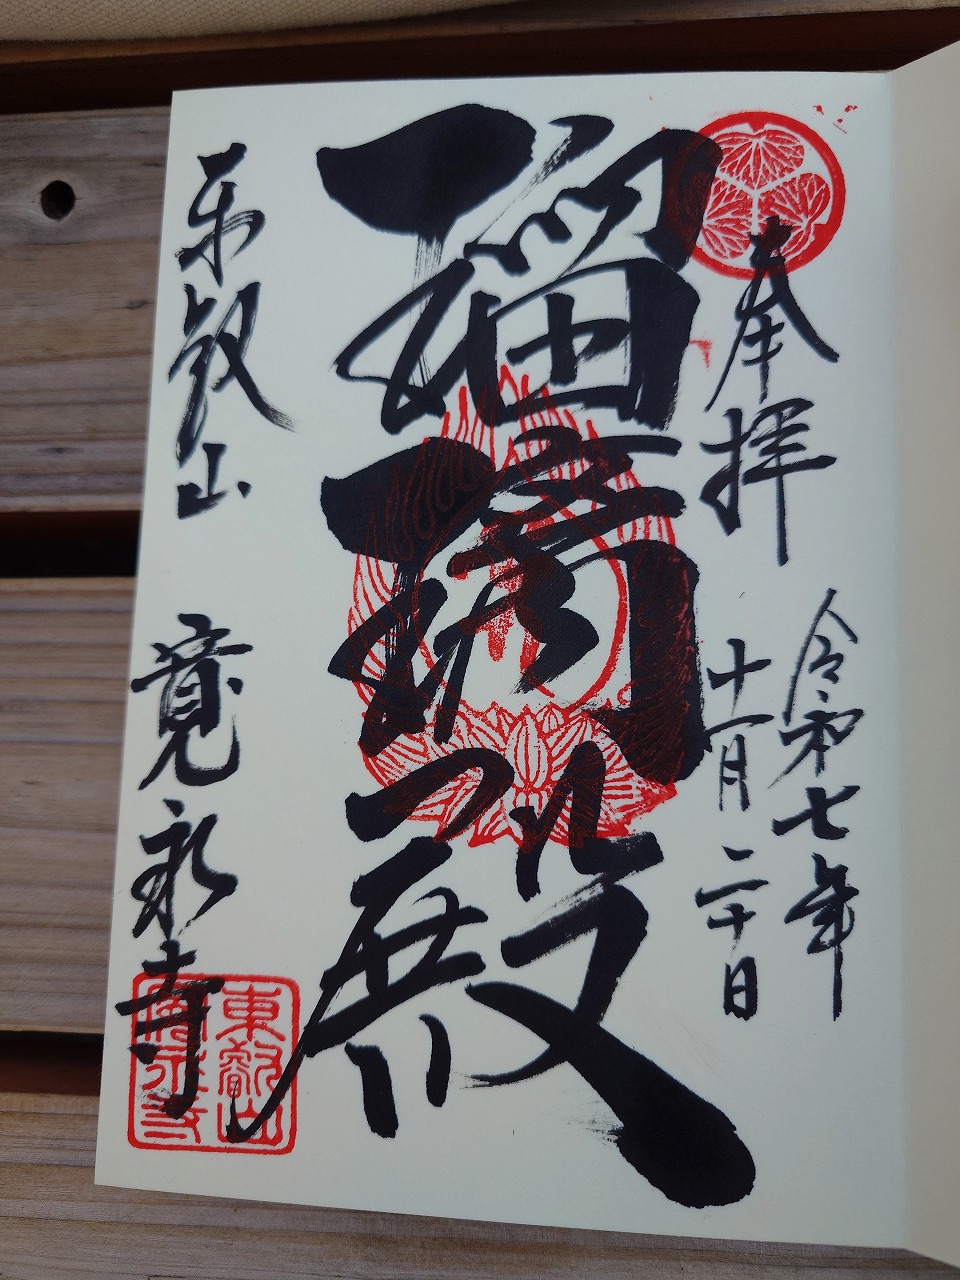 奉拝
令和七年
十一月二十日
瑠璃殿
東叡山 寛永寺
東叡山
寛永寺